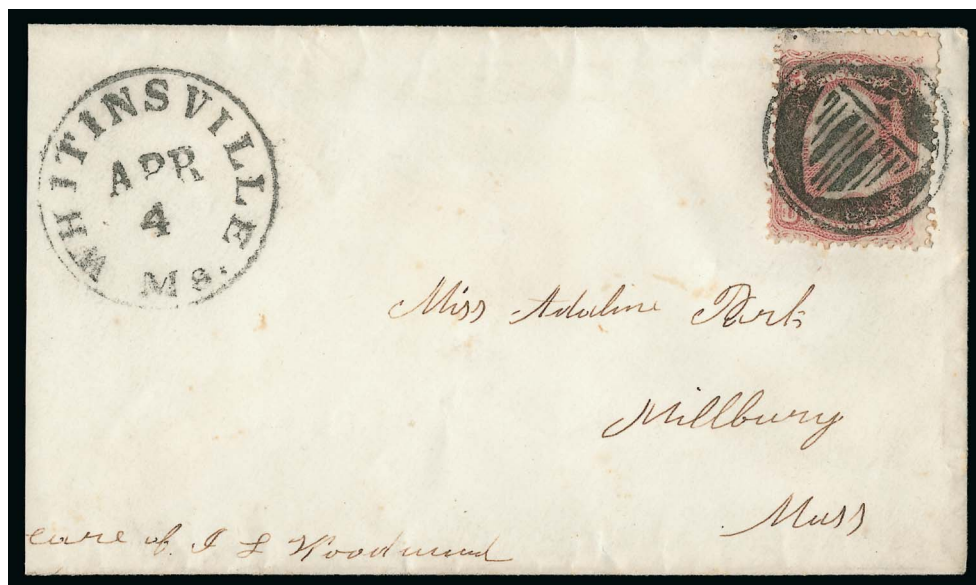 WHITINSVILLE
APR
4
Ms.
Miss Adaline Park
Millbury
Mass
care of I L Woodward